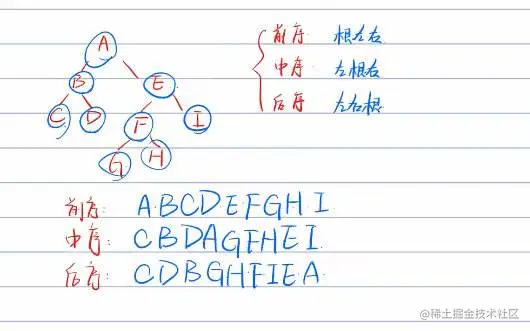 A
B E
C D F I
G H
前序 根左右
中序 左根右
后序 左右根
前序: A.B.C.D.E.F.G.H.I
中序: C B D A G F H E I.
后序: C D B G H F I E A.
@稀土掘金技术社区